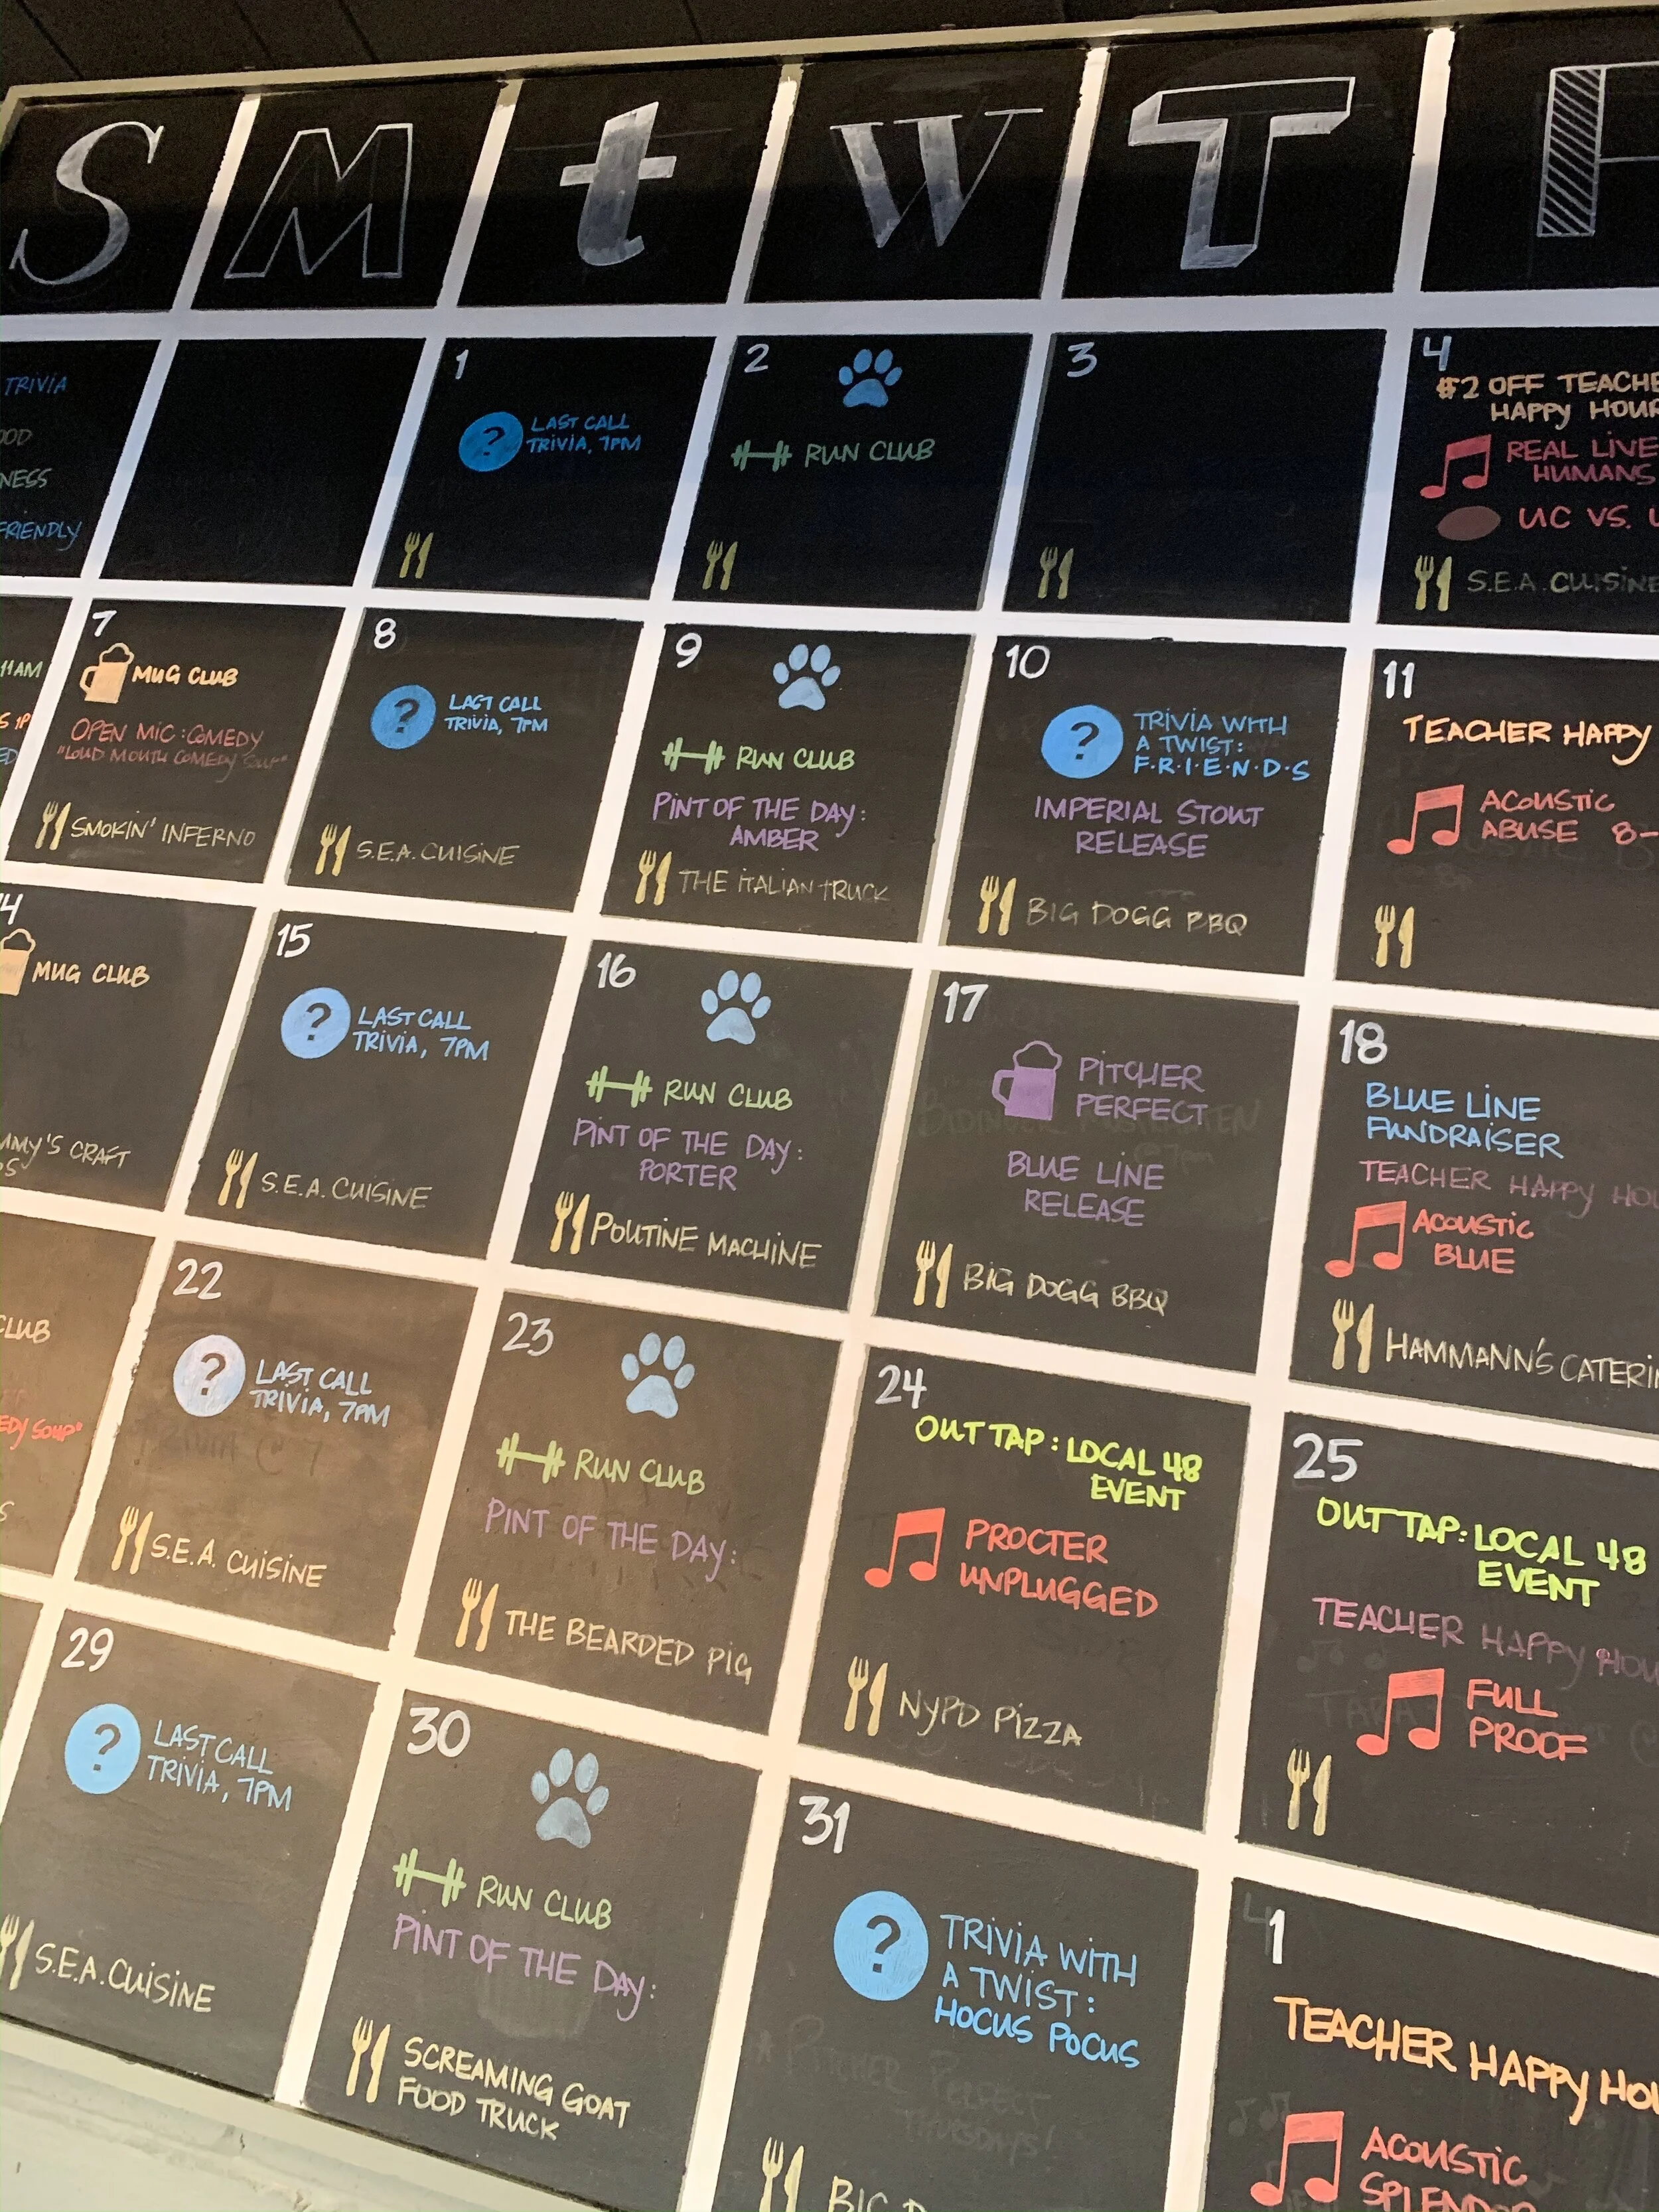 S M t W T F
TRIVIA
FRIENDLY
1
LAST CALL
TRIVIA, 7PM
2
RUN CLUB
3
4
#2 OFF
HAPPY
REAL LIVE
HUMANS
UC VS.
S.E.A. CUISINE
11AM
7
MUG CLUB
OPEN MIC: COMEDY
"LOUD MOUTH COMEDY SOUP"
SMOKIN' INFERNO
8
LAST CALL
TRIVIA, 7PM
S.E.A. CUISINE
9
RUN CLUB
PINT OF THE DAY:
AMBER
THE ITALIAN TRUCK
10
TRIVIA WITH
A TWIST:
F·R·I·E·N·D·S
IMPERIAL STOUT
RELEASE
BIG DOGG BBQ
11
TEACHER HAPPY
ACOUSTIC
ABUSE 8-
MUG CLUB
CRAFT
15
LAST CALL
TRIVIA, 7PM
S.E.A. CUISINE
16
RUN CLUB
PINT OF THE DAY:
PORTER
POUTINE MACHINE
17
PITCHER
PERFECT
BLUE LINE
RELEASE
BIG DOGG BBQ
18
BLUE LINE
FUNDRAISER
TEACHER HAPPY
ACOUSTIC
BLUE
HAMMANN'S
CLUB
SOUP"
22
LAST CALL
TRIVIA, 7PM
S.E.A. CUISINE
23
RUN CLUB
PINT OF THE DAY:
THE BEARDED PIG
24
OUT TAP: LOCAL 48
EVENT
PROCTER
UNPLUGGED
NYPD PIZZA
25
OUT TAP: LOCAL 48
EVENT
TEACHER HAPPY
FULL
PROOF
29
LAST CALL
TRIVIA, 7PM
S.E.A. CUISINE
30
RUN CLUB
PINT OF THE DAY:
SCREAMING GOAT
FOOD TRUCK
31
TRIVIA WITH
A TWIST:
HOCUS POCUS
BIG
1
TEACHER HAPPY
ACOUSTIC